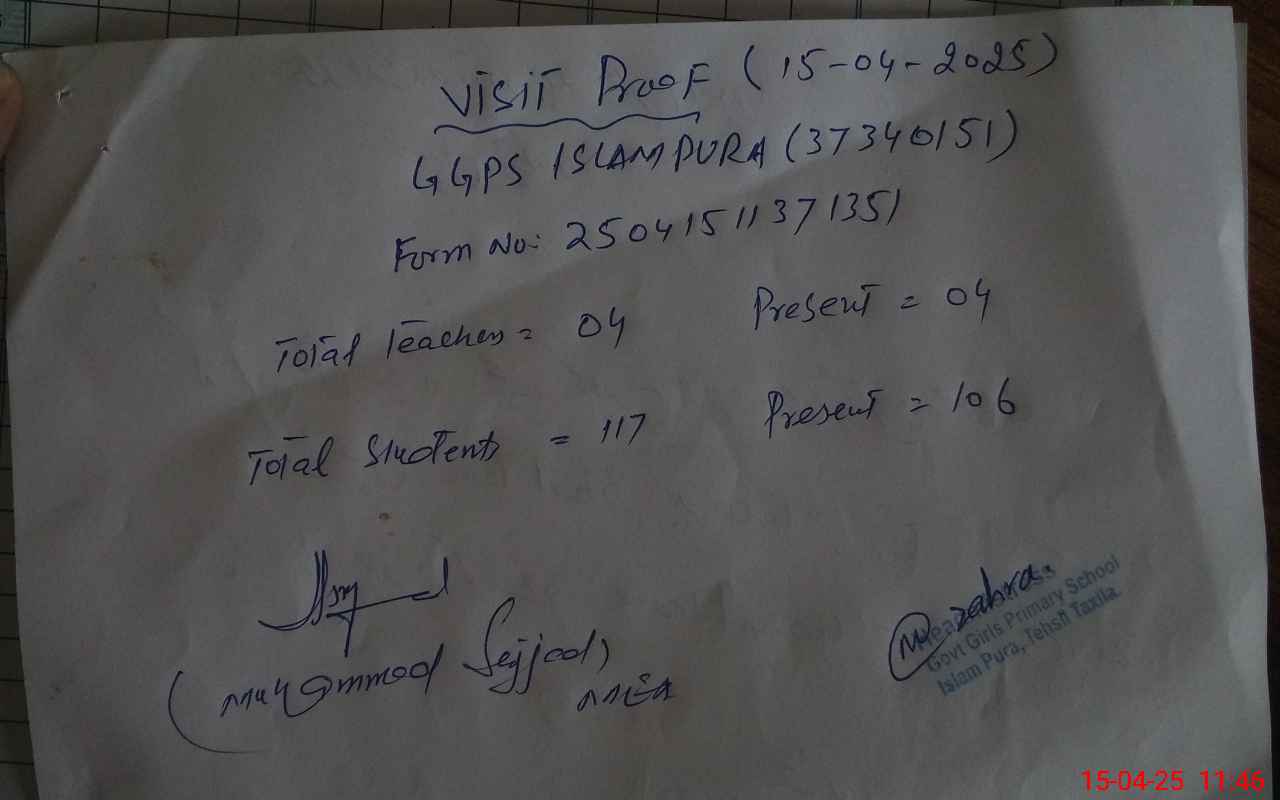 Visit Proof (15-04-2025)
GGPS ISLAMPURA (37340151)
Form No: 25041511371351
Total Teachers = 04 Present = 04
Total Students = 117 Present = 106
(Muhammad Sajjad)
MEA
zahra
Govt Girls Primary School
Islam Pura, Tehsil Taxila
15-04-25 11:46